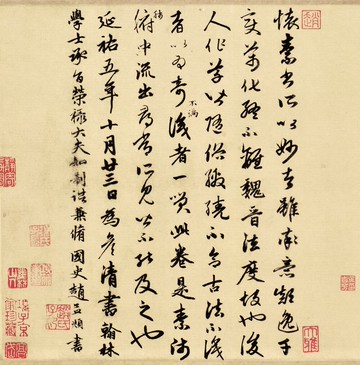 懷素書所以妙者雖率意顛逸千
變萬化終不離魏晉法度故也後
人作草皆隨俗繳繞不合古法不識
者以為奇不滿識者一笑此卷是素師
肺腑中流出尋常所見皆不能及之也
延祐五年十月廿三日為彥清書翰林
學士承旨榮祿大夫知制誥兼脩國史趙孟頫書